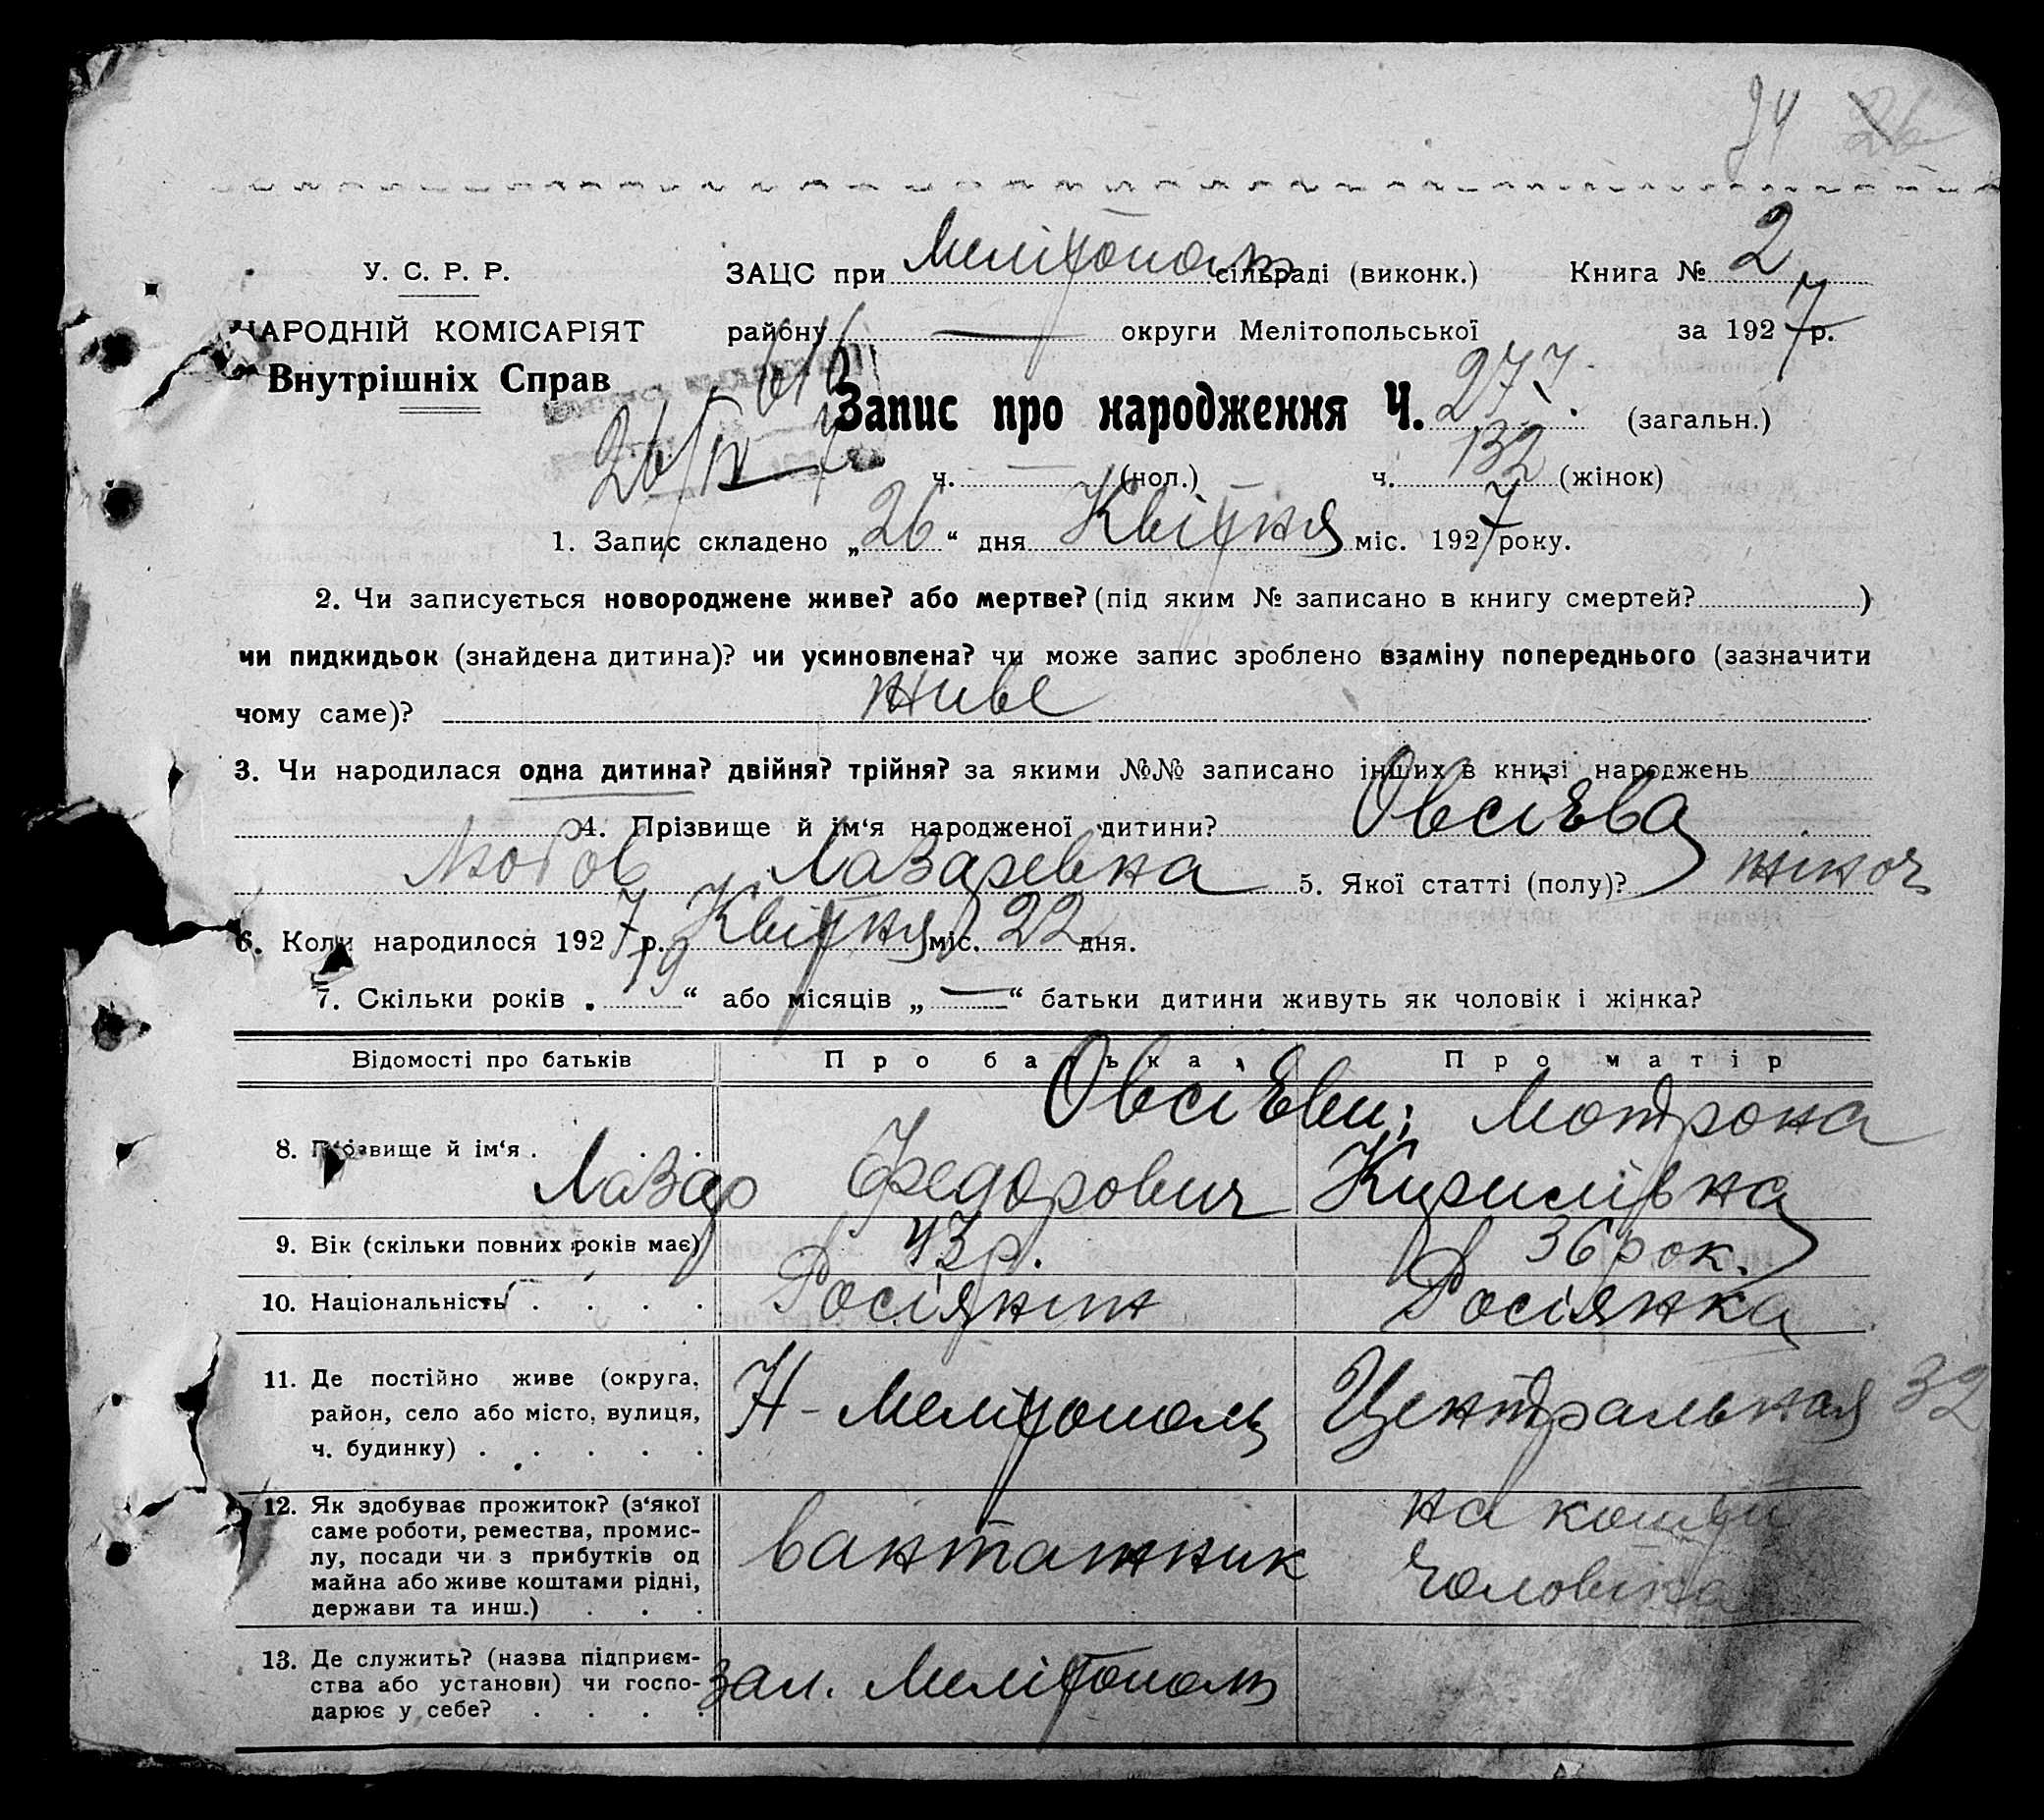 94 26
У. С. Р. Р.
ЗАЦС при Мелітополь сільраді (виконк.) Книга № 2
НАРОДНІЙ КОМІСАРІЯТ
району — округи Мелітопольської за 1927 р.
Внутрішніх Справ
Запис про народження Ч. 277. (загальн.)
26/IV
ч. — (чол.) ч. 132 (жінок)
1. Запис складено „26“ дня Квітня міс. 1927 року.
2. Чи записується новороджене живе? або мертве? (під яким № записано в книгу смертей? )
чи пидкидьок (знайдена дитина)? чи усиновлена? чи може запис зроблено взаміну попереднього (зазначити
чому саме)? живе
3. Чи народилася одна дитина? двійня? трійня? за якими №№ записано інших в книзі народжень
4. Прізвище й ім‘я народженої дитини? Овсієва
Любов Лазаревна 5. Якої статті (полу)? жіноч
6. Коли народилося 1927 р. Квітня міс. 22 дня.
7. Скільки років „19“ або місяців „—“ батьки дитини живуть як чоловік і жінка?
Відомості про батьків Про батька Про матір
8. Прізвище й ім‘я . Овсієви; Мотрона
Лазар Федорович Кирилівна
9. Вік (скільки повних років має) 43 р. 36 рок.
10. Національність . . . . Росіянин Росіянка
11. Де постійно живе (округа,
район, село або місто, вулиця, Н-Мелітополь Центральная 32
ч. будинку) . . . . .
12. Як здобуває прожиток? (з‘якої на кошти
саме роботи, ремества, промис-
лу, посади чи з прибутків од вантажник чоловіка
майна або живе коштами рідні,
держави та инш.) . . .
13. Де служить? (назва підприєм-
ства або установи) чи госпо- зал. Мелітополь
дарює у себе? . . . .